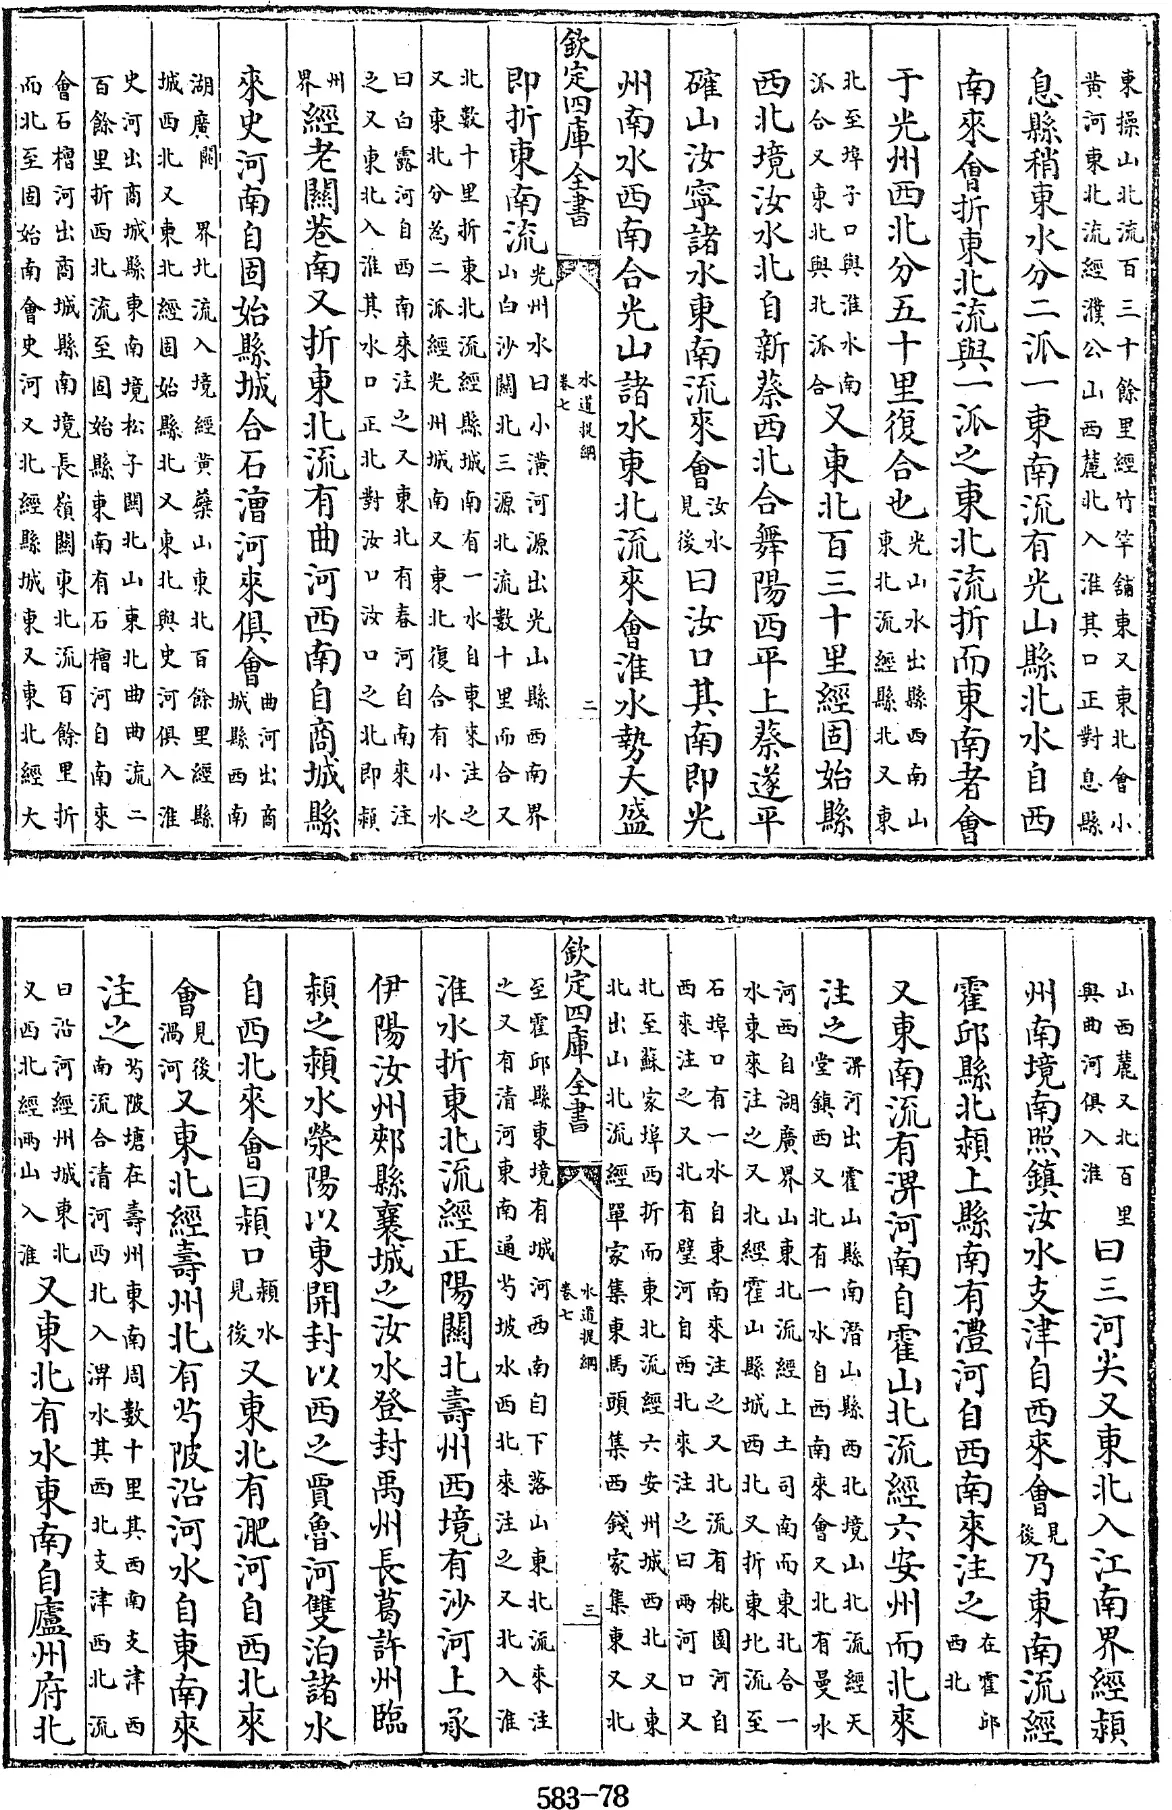 東操山北流百三十餘里經竹竿舖東又東北會小
黃河東北流經濮公山西麓北入淮其口正對息縣
息縣稍東水分二派一東南流有光山縣北水自西
南來會折東北流與一派之東北流折而東南者會
于光州西北分五十里復合也
光山水出縣西南山
東北流經縣北又東
北至埠子口與淮水南
派合又東北與北派合
又東北百三十里經固始縣
西北境汝水北自新蔡西北合舞陽西平上蔡遂平
確山汝寧諸水東南流來會
汝水
見後
曰汝口其南即光
州南水西南合光山諸水東北流來會淮水勢大盛
欽定四庫全書
水道提綱
卷七
二
即折東南流
光州水曰小潢河源出光山縣西南界
山白沙關北三源北流數十里而合又
北數十里折東北流經縣城南有一水自東來注之
又東北分為二派經光州城南又東北復合有小水
曰白露河自西南來注之又東北有春河自南來注
之又東北入淮其水口正北對汝口汝口之北即潁
州
界
經老關巷南又折東北流有曲河西南自商城縣
來史河南自固始縣城合石漕河來俱會
曲河出商
城縣西南
湖廣關界北流入境經黄蘗山東北百餘里經縣
城西北又東北經固始縣北又東北與史河俱入淮
史河出商城縣東南境松子關北山東北曲曲流二
百餘里折西北流至固始縣東南有石檀河自南來
會石檀河出商城縣南境長嶺關東北流百餘里折
而北至固始南會史河又北經縣城東又東北經大
山西麓又北百里
與曲河俱入淮
曰三河尖又東北入江南界經潁
州南境南照鎮汝水支津自西來會
見
後
乃東南流經
霍邱縣北潁上縣南有澧河自西南來注之
在霍邱
西北
又東南流有淠河南自霍山北流經六安州而北來
注之
淠河出霍山縣南潛山縣西北境山北流經天
堂鎮西又北有一水自西南來會又北有曼水
河西自湖廣界山東北流經上土司南而東北合一
水東來注之又北經霍山縣城西北又折東北流至
石埠口有一水自東南來注之又北流有桃園河自
西來注之又北有壁河自西北來注之曰兩河口又
北至蘇家埠西折而東北流經六安州城西北又東
北出山北流經單家集東馬頭集西錢家集東又北
欽定四庫全書
水道提綱
卷七
三
至霍邱縣東境有城河西南自下落山東北流來注
之又有清河東南通芍坡水西北來注之又北入淮
淮水折東北流經正陽關北壽州西境有沙河上承
伊陽汝州郟縣襄城之汝水登封禹州長葛許州臨
潁之潁水滎陽以東開封以西之賈魯河雙洎諸水
自西北來會曰潁口
潁水
見後
又東北有淝河自西北來
會
見後
渦河
又東北經壽州北有芍陂沿河水自東南來
注之
芍陂塘在壽州東南周數十里其西南支津西
南流合清河西北入淠水其西北支津西北流
曰沿河經州城東北
又西北經兩山入淮
又東北有水東南自廬州府北
583-78